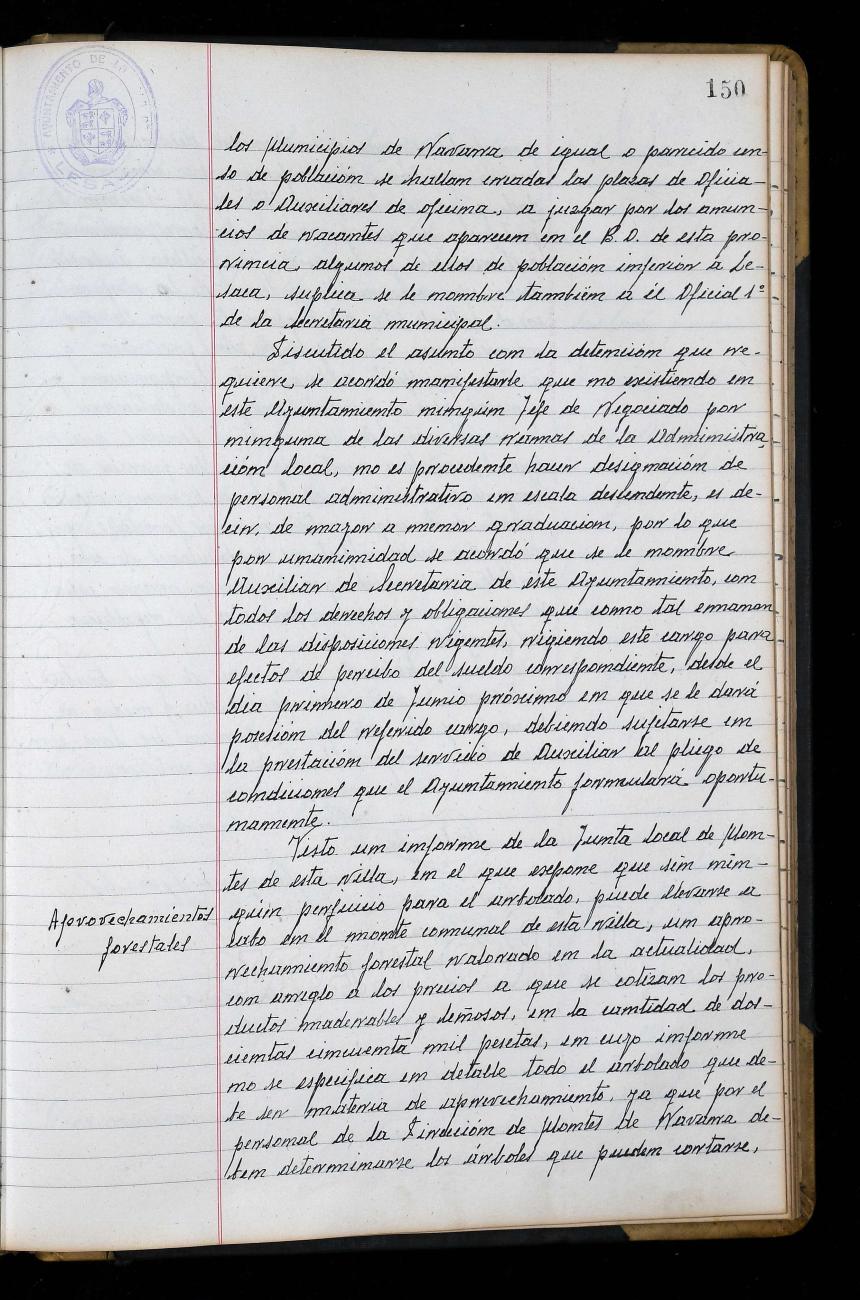 150
AYUNTAMIENTO DE LA
LESACA
los Municipios de Navarra de igual o parecido cen-
so de población se hallan creadas las plazas de Oficia-
les o Auxiliares de oficina, a juzgar por los anun-
cios de vacantes que aparecen en el B.O. de esta pro-
vincia, algunos de ellos de población inferior a Le-
saca, suplica se le nombre también a él Oficial 1º
de la Secretaria municipal.
Discutido el asunto con la detención que re-
quiere, se acordó manifestarle que no existiendo en
este Ayuntamiento ningún Jefe de Negociado por
ninguna de las diversas ramas de la Administra-
ción local, no es procedente hacer designación de
personal administrativo en escala descendente, es de-
cir, de mayor a menor graduación, por lo que
por unanimidad se acordó que se le nombre
Auxiliar de Secretaria de este Ayuntamiento, con
todos los derechos y obligaciones que como tal emanan
de las disposiciones vigentes, rigiendo este cargo para
efectos de percibo del sueldo correspondiente, desde el
día primero de Junio próximo en que se le dará
posesión del referido cargo, debiendo sujetarse en
la prestación del servicio de Auxiliar al pliego de
condiciones que el Ayuntamiento formulará oportu-
namente.
Visto un informe de la Junta local de Mon-
tes de esta villa, en el que expone que sin nin-
gún perjuicio para el arbolado, puede llevarse a
Aprovechamientos
forestales
cabo en el monte comunal de esta villa, un apro-
vechamiento forestal valorado en la actualidad,
con arreglo a los precios a que se cotizan los pro-
ductos maderables y leñosos, en la cantidad de dos-
cientas cincuenta mil pesetas, en cuyo informe
no se especifica en detalle todo el arbolado que de-
be ser materia de aprovechamiento, ya que por el
personal de la Dirección de Montes de Navarra de-
ben determinarse los árboles que pueden cortarse,